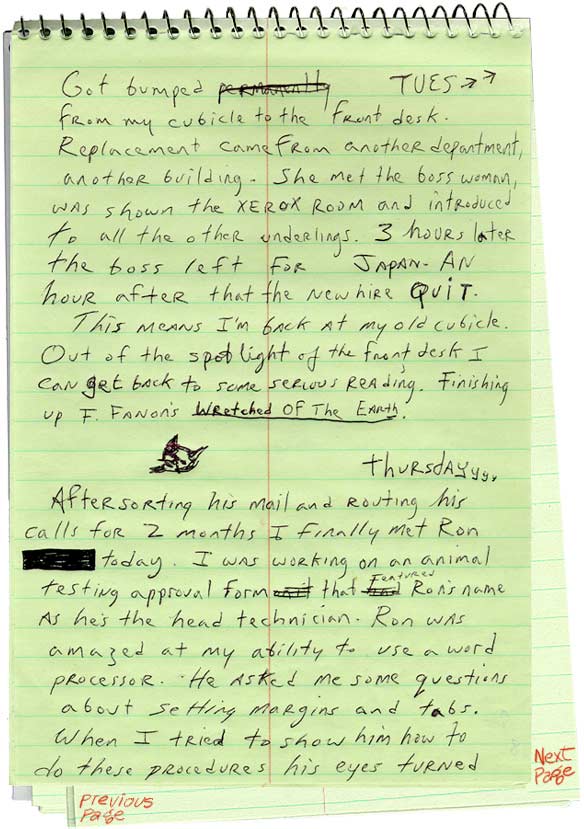 Got bumped permanently TUES
from my cubicle to the front desk.
Replacement came from another department,
another building. She met the boss woman,
was shown the XEROX ROOM and introduced
to all the other underlings. 3 hours later
the boss left for JAPAN. AN
hour after that the new hire QUIT.
This means I'm back at my old cubicle.
Out of the spotlight of the front desk I
can get back to some serious reading. Finishing
up F. Fanon's Wretched Of The Earth.
thursdayyyy
After sorting his mail and routing his
calls for 2 months I finally met Ron
today. I was working on an animal
testing approval form that Featured Ron's name
As he's the head technician. Ron was
amazed at my ability to use a word
processor. He asked me some questions
about setting margins and tabs.
When I tried to show him how to
do these procedures his eyes turned
Next
Page
Previous
Page